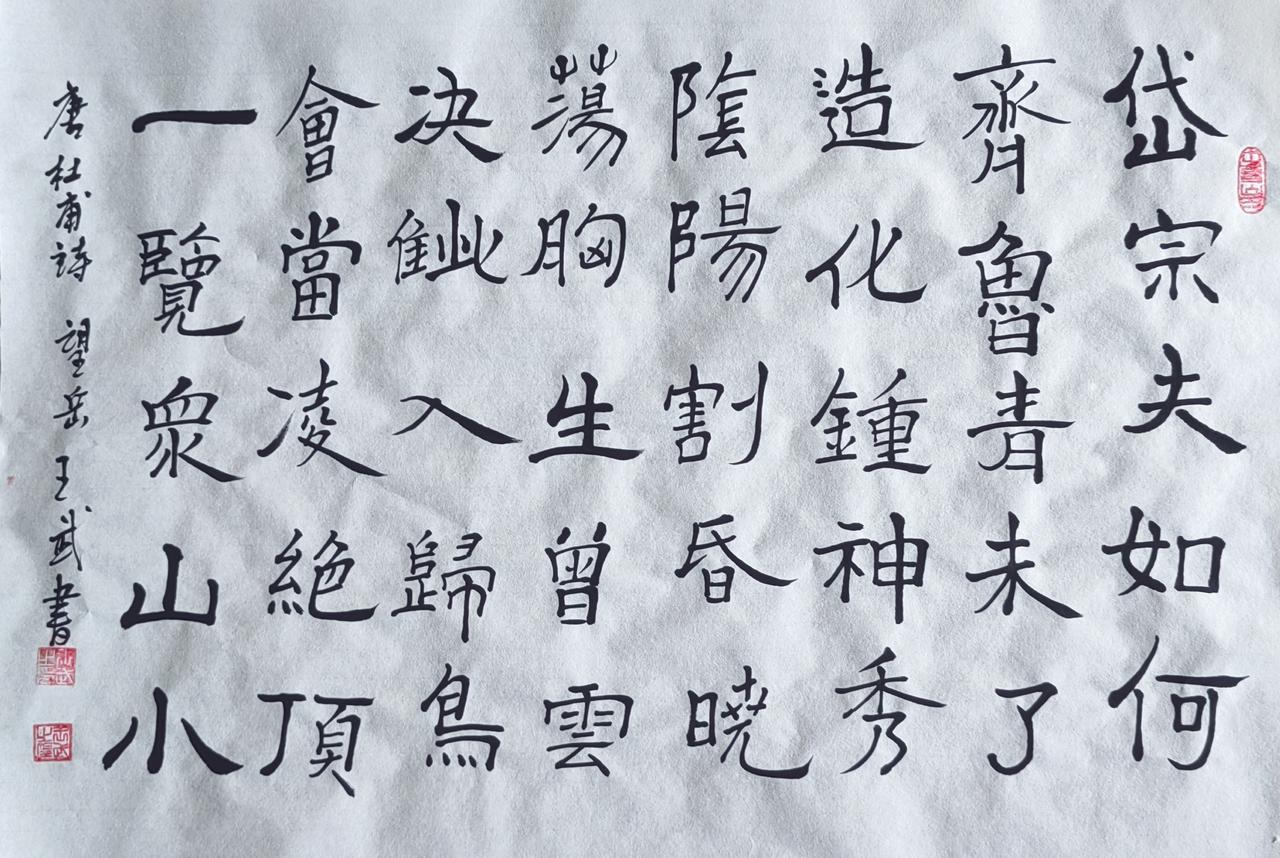 岱宗夫如何
齊魯青未了
造化鍾神秀
陰陽割昏曉
蕩胸生曾雲
决眦入歸鳥
會當凌絕頂
一覽衆山小
唐杜甫詩 望岳 王武書